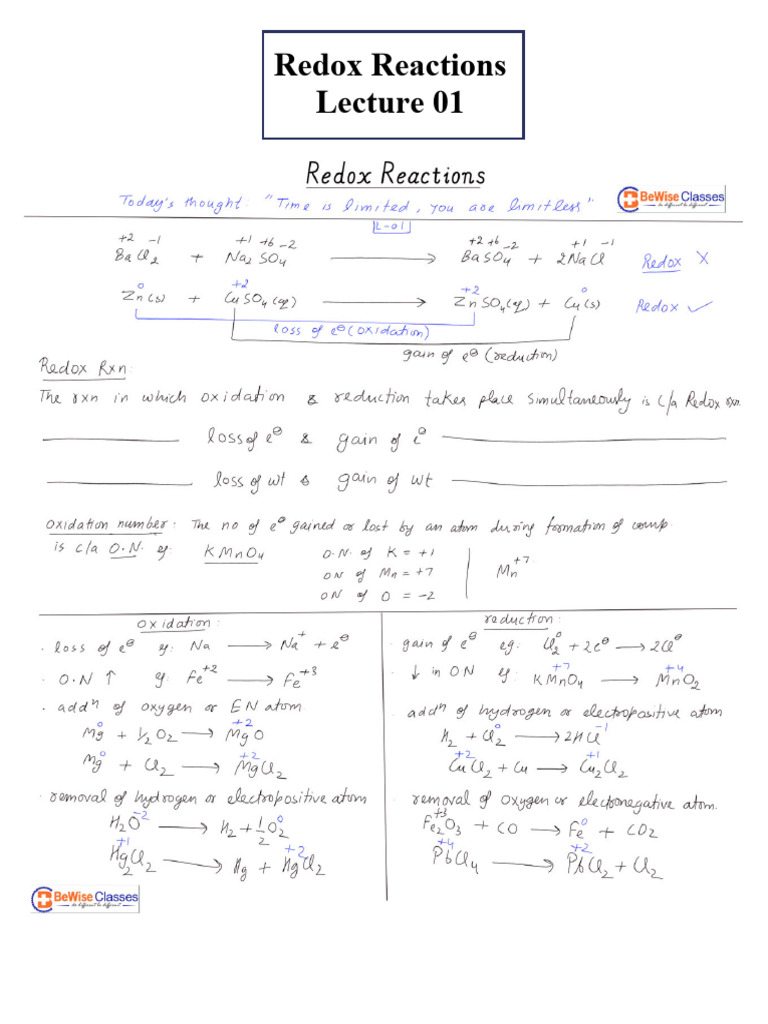 Redox Reactions
Lecture 01
Redox Reactions
Today's thought: "Time is limited, you are limitless"
BeWise Classes
L-01
+2 -1 +1 +6 -2 +2 +6 -2 +1 -1
BaCl2 + Na2SO4 → BaSO4 + 2NaCl Redox X
0 +2 +2 0
Zn(s) + CuSO4(aq) → ZnSO4(aq) + Cu(s) Redox ✓
loss of e⊖ (oxidation)
gain of e⊖ (reduction)
Redox Rxn:
The rxn in which oxidation & reduction takes place simultaneously is c/a Redox rxn.
loss of e⊖ & gain of e⊖
loss of wt & gain of wt
Oxidation number: The no of e⊖ gained or lost by an atom during formation of comp.
is c/a O.N. eg: KMnO4 O.N. of K = +1
ON of Mn = +7 Mn+7
ON of O = -2
oxidation:
· loss of e⊖ eg: Na → Na+ + e⊖
· O.N ↑ eg: Fe+2 → Fe+3
· addn of oxygen or EN atom.
0 +2
Mg + 1/2 O2 → MgO
0 +2
Mg + Cl2 → MgCl2
· removal of hydrogen or electropositive atom
-2 0
H2O → H2 + 1/2 O2
+1 +2
Hg2Cl2 → Hg + HgCl2
reduction:
· gain of e⊖ eg: Cl2 0 + 2e⊖ → 2Cl⊖
+7 +4
· ↓ in ON eg: KMnO4 → MnO2
· addn of hydrogen or electropositive atom
0 -1
H2 + Cl2 → 2HCl
+2 +1
CuCl2 + Cu → Cu2Cl2
· removal of oxygen or electronegative atom.
+3 0
Fe2O3 + CO → Fe + CO2
+4 +2
PbCl4 → PbCl2 + Cl2
BeWise Classes